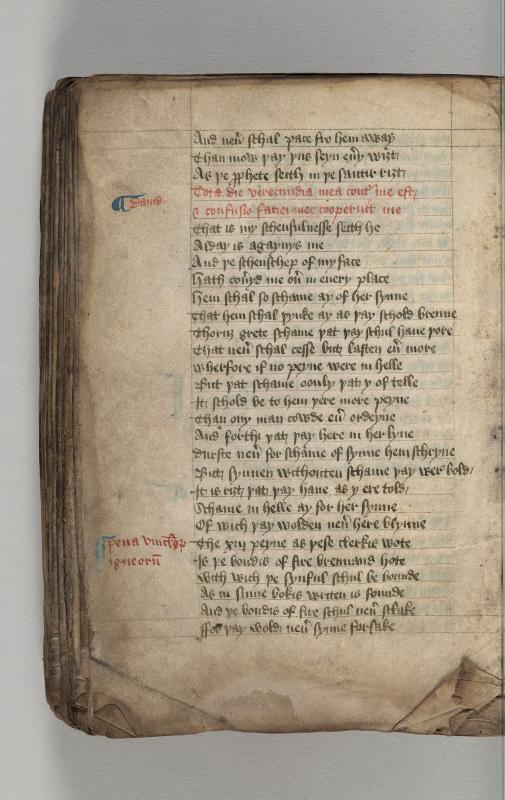 And neuer schal pace fro hem away
Than mow þay þus seyn euer wiȝt
As þe prophete seith in þe sautir riȝt
Dauid
Tota die verecundia mea contra me est
& confusio faciei mee cooperuit me
That is my schenfulnesse seith he
Alday is agaynys me
And þe schenschep of my face
Hath coueryd me ouer in euery place
Hem schal so schame ay of her synne
That hem schal þynke ay as þay schold brenne
Thoruȝ grete schame þat þay schul haue þore
That neuer schal cesse but lasten euer more
Wherfore if no peyne were in helle
But þat schame oonly þat y of telle
It schold be to hem þere more peyne
Than ony man cowde euer ordeyne
And forthi þat þay here in her lyue
Durste neuer for schame of synne hem schryue
But synnen withouten schame þay wer bold
It is riȝt þat þay haue as y ere told
Schame in helle ay for her synne
Of wich þay wolden neuer here blynne
Pena vinculorum
igneorum
The xiij peyne as þese clerkis wote
Is þe bondis of fire brennand hote
With wich þe synful schul be bounde
As in summe bokis writen is founde
And þe bondis of fire schul neuer slake
Ffor þay wold neuer synne forsake